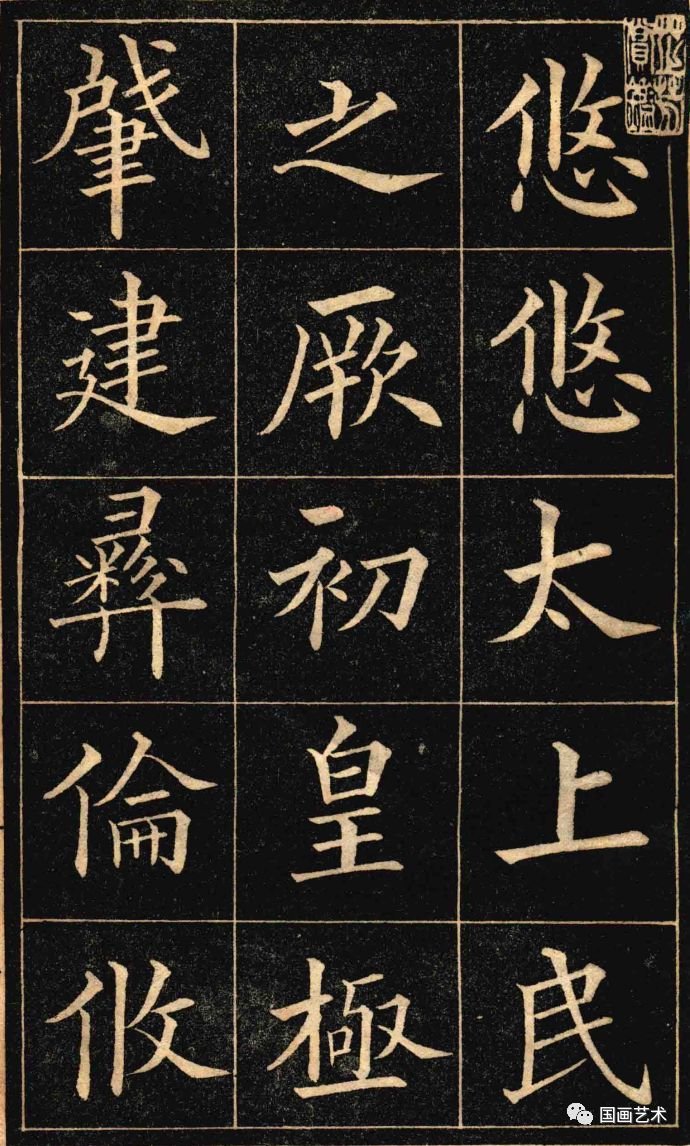 悠悠太上民
之厥初皇極
肇建彝倫攸
国画艺术